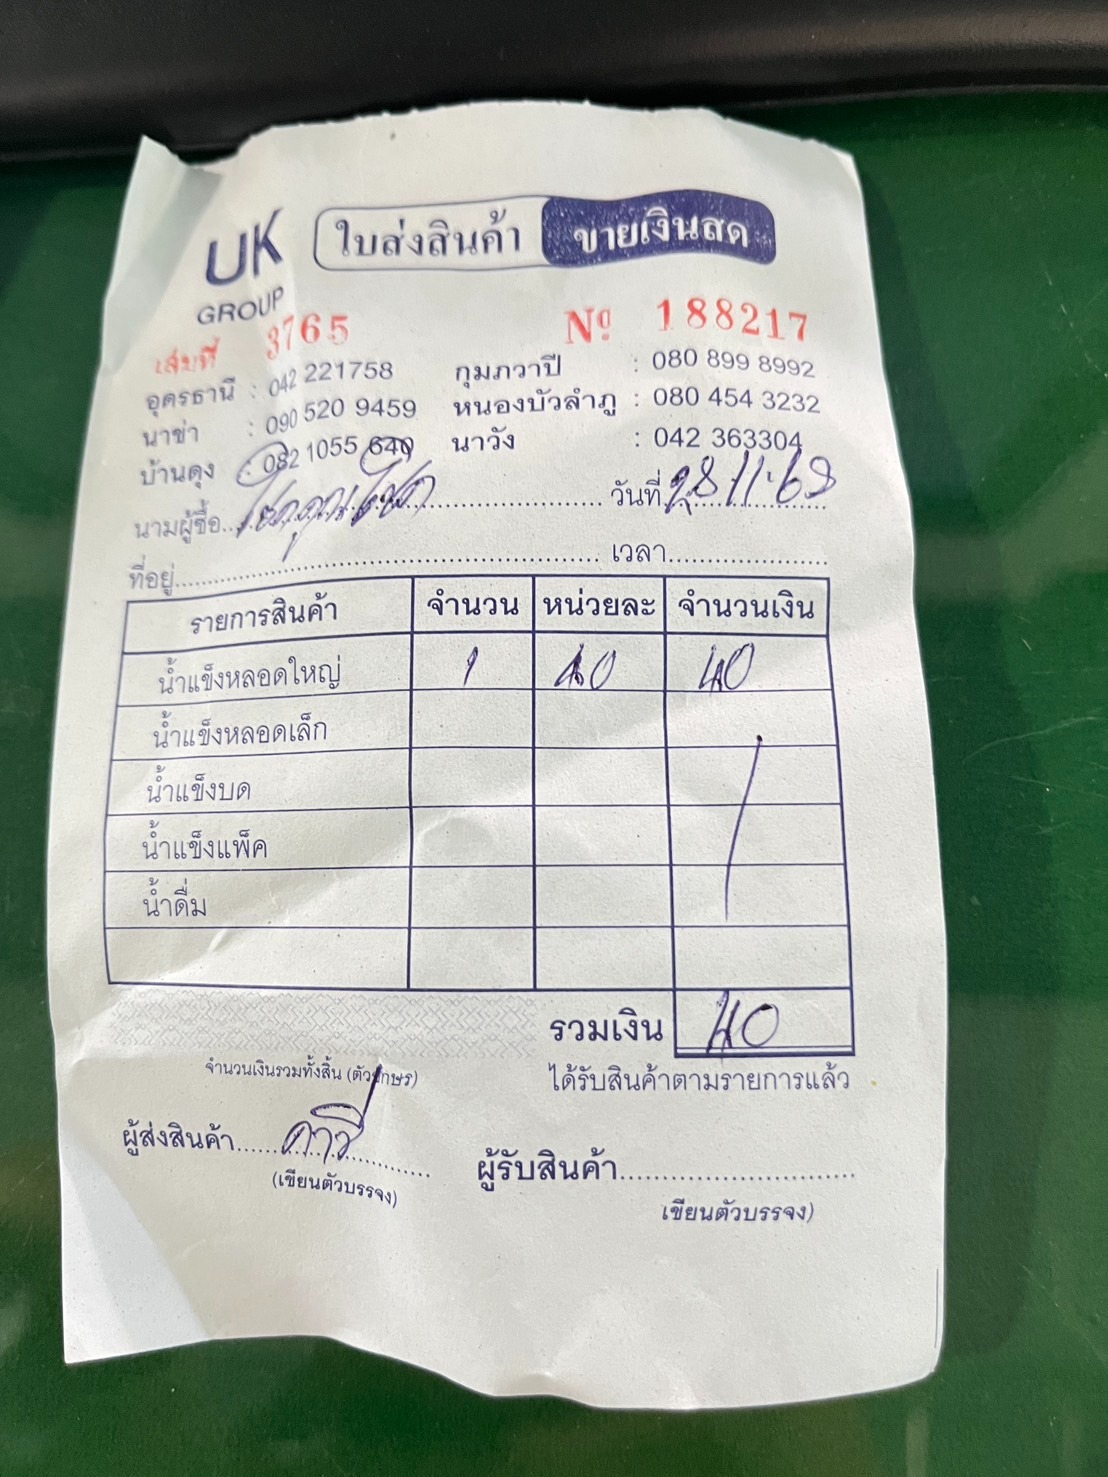 UK
GROUP
ใบส่งสินค้า ขายเงินสด
เล่มที่ 3765 Nº 188217
อุดรธานี : 042 221758 กุมภวาปี : 080 899 8992
นาข่า : 090 520 9459 หนองบัวลำภู : 080 454 3232
บ้านดุง : 082 1055 640 นาวัง : 042 363304
นามผู้ซื้อ วันที่ 28 11 68
ที่อยู่ เวลา
รายการสินค้า จำนวน หน่วยละ จำนวนเงิน
น้ำแข็งหลอดใหญ่ 1 40 40
น้ำแข็งหลอดเล็ก
น้ำแข็งบด
น้ำแข็งแพ็ค
น้ำดื่ม
รวมเงิน 40
จำนวนเงินรวมทั้งสิ้น (ตัวอักษร) ได้รับสินค้าตามรายการแล้ว
ผู้ส่งสินค้า ผู้รับสินค้า
(เขียนตัวบรรจง) เขียนตัวบรรจง)